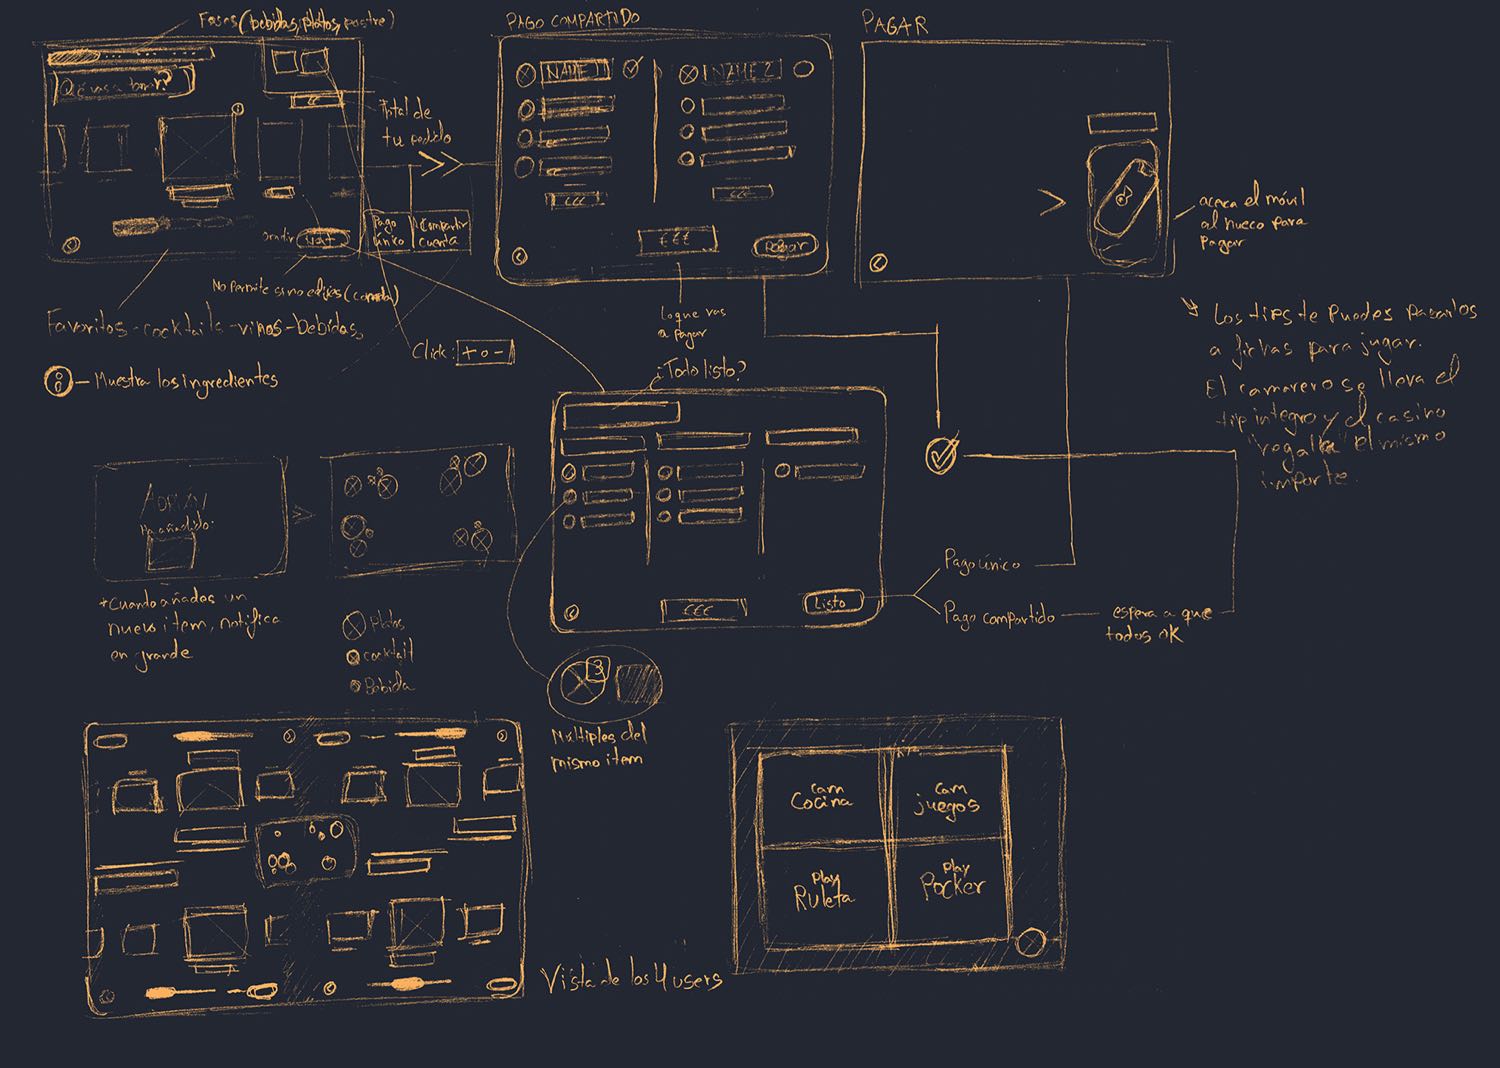 Fases (bebidas, platos, postre)
PAGO COMPARTIDO
PAGAR
Qué vas a tomar?
€€
Total de
tu pedido
Pago
único
Compartir
cuenta
No Permite si no eliges (comida)
Favoritos-cocktails-vinos-Bebidas
Click: + o -
i - Muestra los ingredientes
NAME 1
NAME 2
€€€
€€€
€€€
Pagar
Lo que vas
a pagar
acerca el móvil
al hueco para
pagar
Los tips te puedes pasarlos
a fichas para jugar.
El camarero se lleva el
tip integro y el casino
"regala" el mismo
importe.
¿Todo listo?
€€€
Listo
Pago único
Pago compartido
espera a que
todos OK
ADRIAN
Ha añadido:
*Cuando añades un
nuevo item, notifica
en grande
Platos
cocktail
Bebida
3
Múltiples del
mismo item
Vista de los 4 users
cam
Cocina
cam
juegos
play
Ruleta
play
Pocker